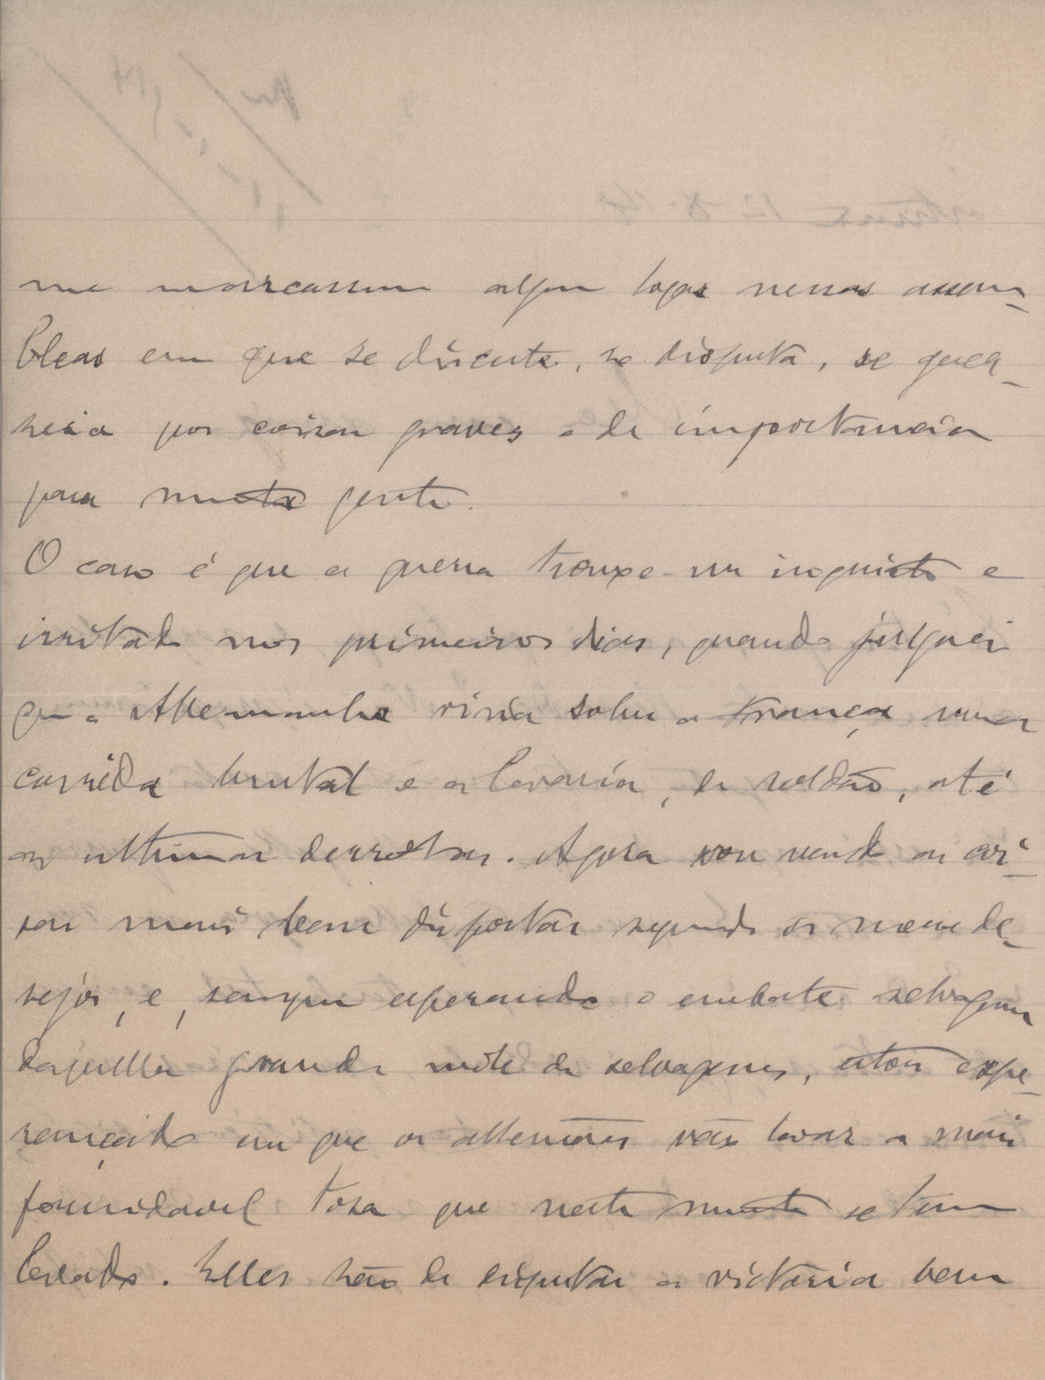 me marcassem algum logar nessas assem-
bleas em que se discute, se disputa, se guer-
reia por coisas graves e de importancia
para muita gente.
O caso é que a guerra trouxe-me inquieto e
irritado nos primeiros dias, quando julguei
que a Allemanha viria sobre a França numa
corrida brutal e a levaria, de roldão, até
ás ultimas derrotas. Agora vou vendo as coi-
sas mais bem dispostas segundo os meus de-
sejos, e, sempre esperando o embate selvagem
daquella grande mole de selvagens, estou espe-
rançado em que os allemães vão levar a mais
formidavel tosa que neste mundo se tem
levado. Elles hão de disputar a victoria bem